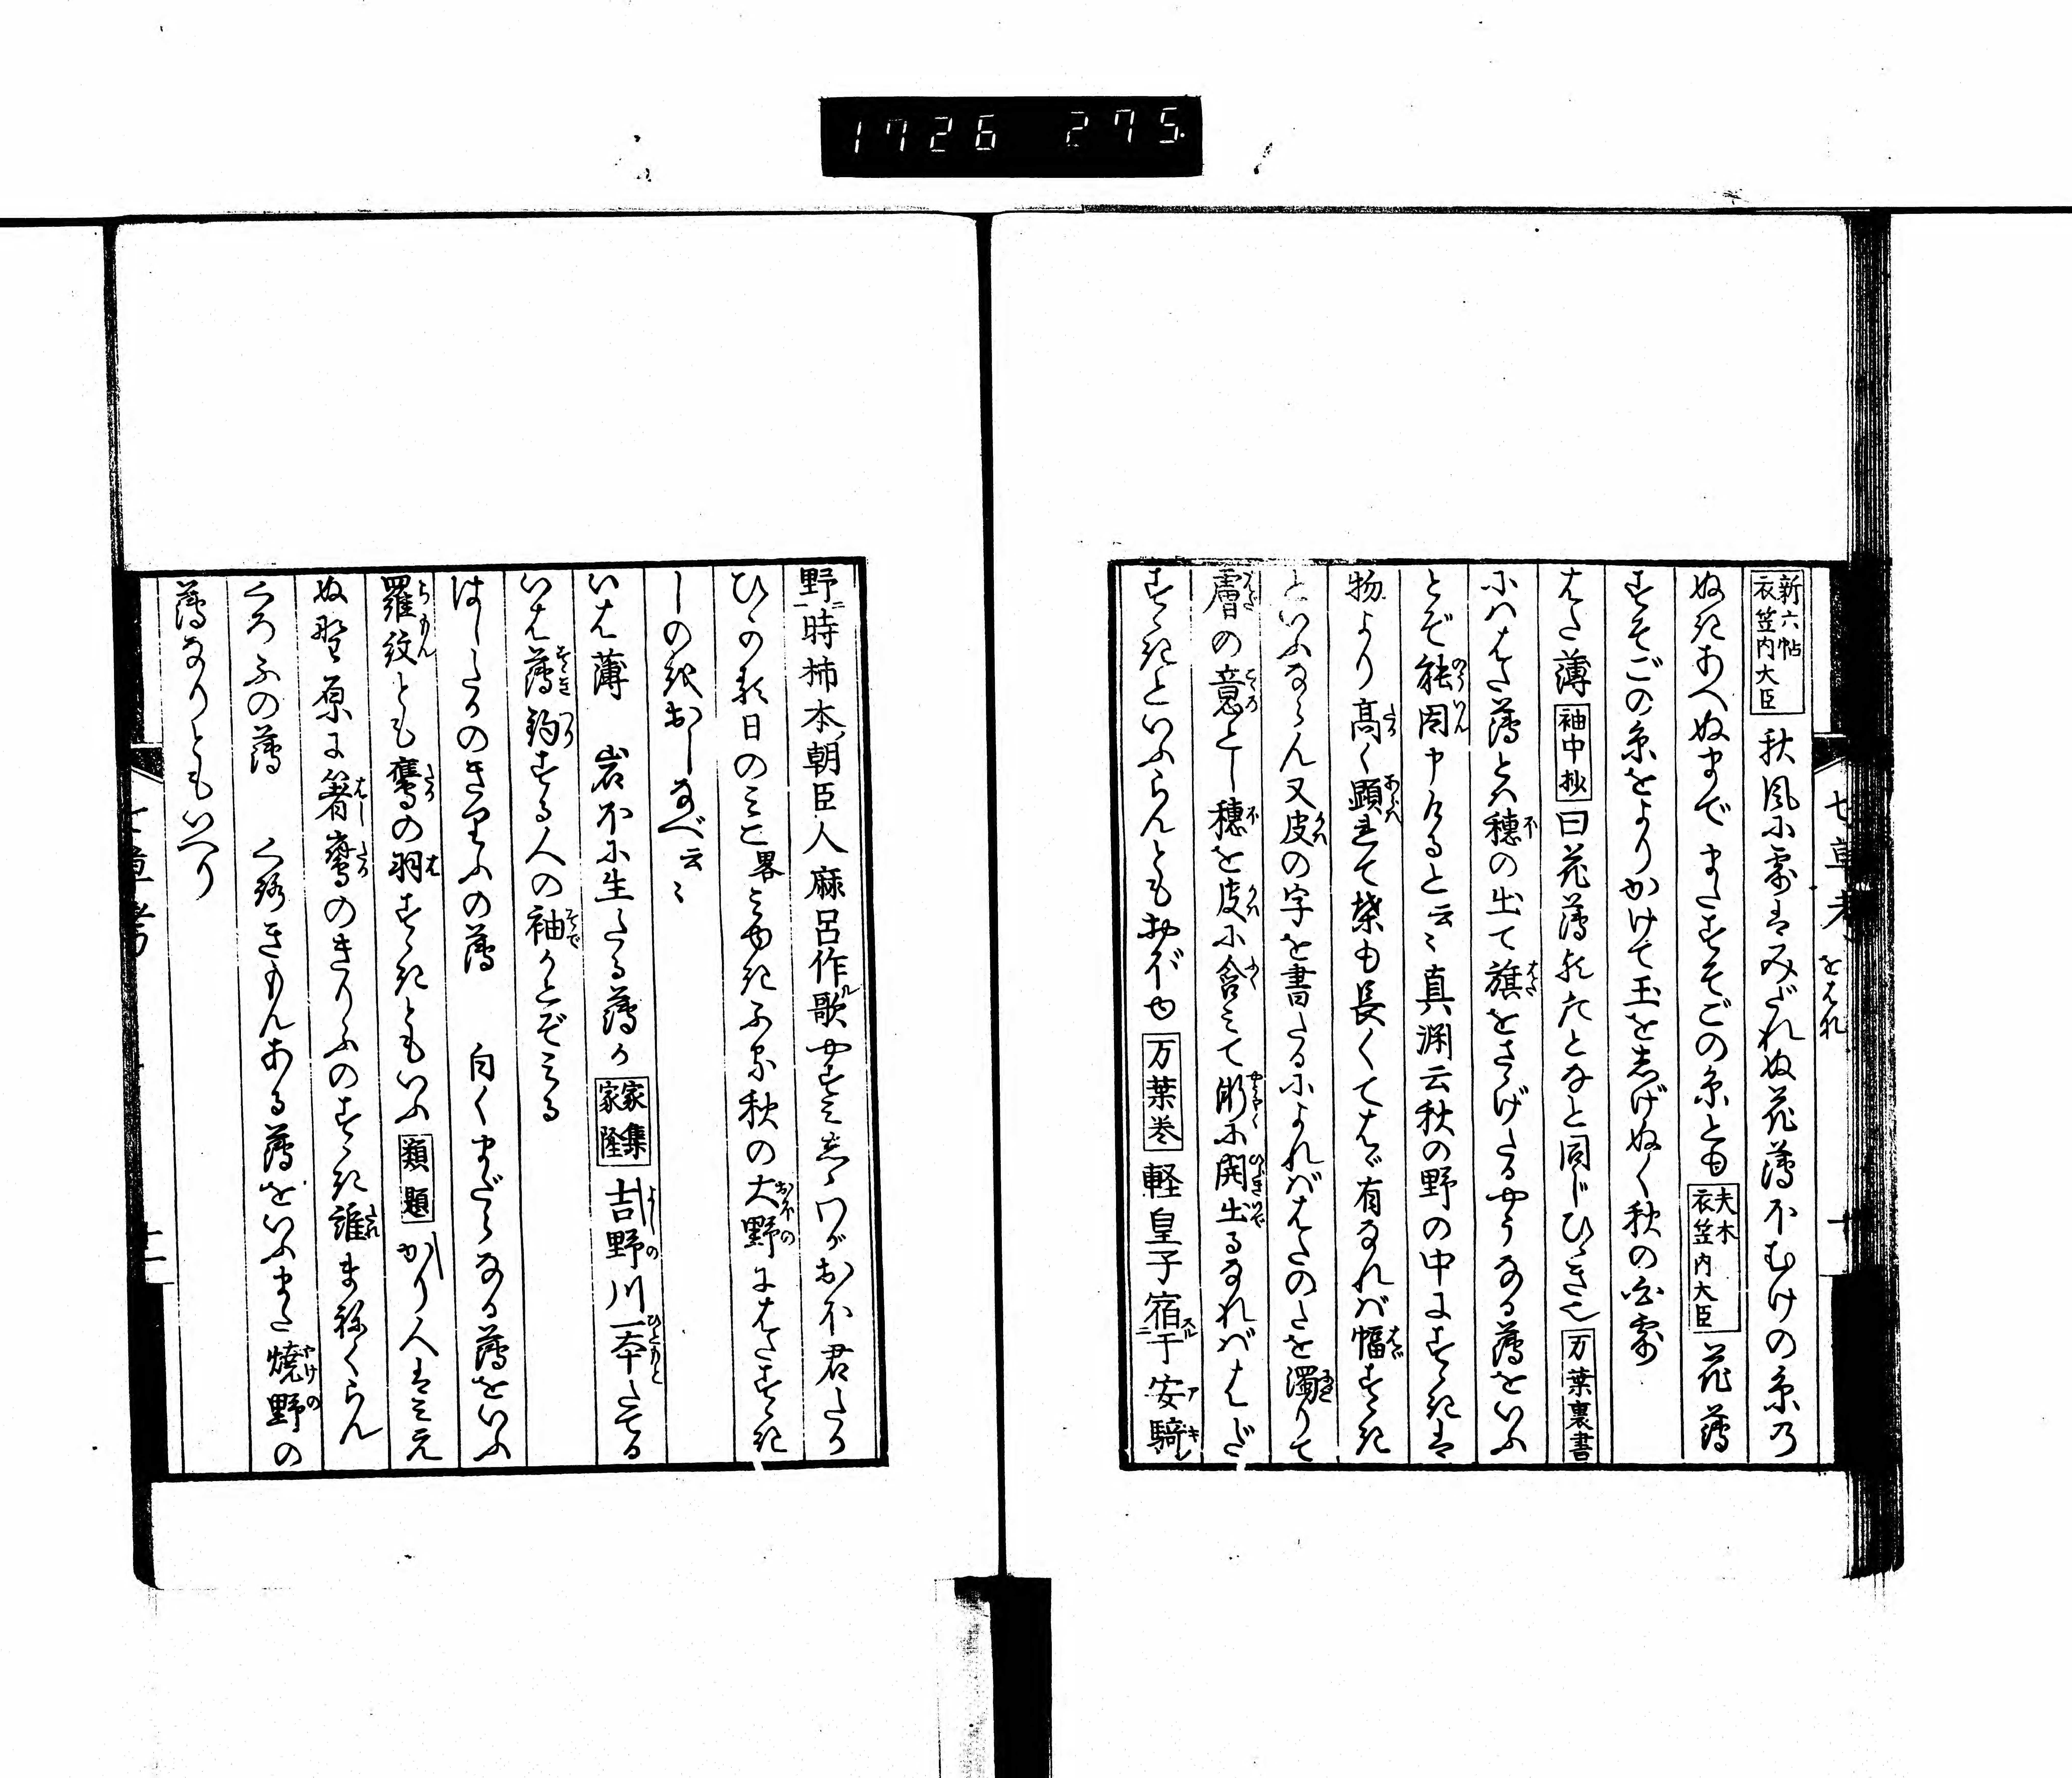 1726 275
新六帖
衣笠内大臣
秋風に露はみだれぬ花薄ほむけの糸の
ぬきあへぬまで またすそごの糸とも
夫木
衣笠内大臣
花薄
すそごの糸をよりかけて玉をしげぬく秋の白露
はた薄 袖中抄 曰花薄
となと同じひゞき也 万葉裏書
にはゝた薄とハ穂の出て旗をさゝげたるやうなる薄をいふ
とぞ能因申けると云々 真渕云秋の野の中にすゝきは
物より高く顕れて葉も長くてはゞ有なれば幅すゝき
といふならん又皮の字を書たるによればはたのたを濁りて
膚の意とし穂を皮に含みて漸に開出るなればはだ
すゝきといふらんともおぼゆ 万葉巻 軽皇子宿于安騎
七草考
をはれ
十
野時柿本朝臣人麻呂作歌 やすみしゝわがおほ君たか
ひかる日のみこ 畧 みゆきふる秋の大野にはたすゝき
しのをおしなべ云々
いは薄 岩ほに生たる薄か 家集
家隆
吉野川一本たてる
いは薄釣する人の袖かとぞみる
はしたかのきりふの薄 白くまだらなる薄をいふ
羅紋とも鷹の羽すゝきともいふ 類題 かり人はみえ
ぬ野原に箸鷹のきりふのすゝき誰まねくらん
くろふの薄 くろきもんある薄をいふまた焼野の
薄なりともいへり
七草考
十一